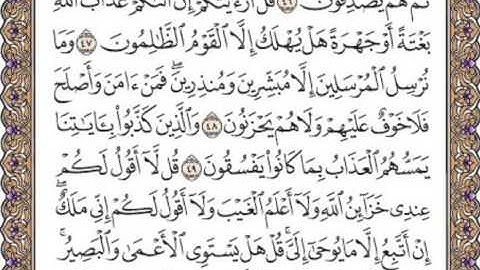 ثُمَّ هُمْ يَصْدِفُونَ ٤٦ قُلْ أَرَءَيْتَكُمْ إِنْ أَتَىٰكُمْ عَذَابُ ٱللَّهِ
بَغْتَةً أَوْ جَهْرَةً هَلْ يُهْلَكُ إِلَّا ٱلْقَوْمُ ٱلظَّٰلِمُونَ ٤٧ وَمَا
نُرْسِلُ ٱلْمُرْسَلِينَ إِلَّا مُبَشِّرِينَ وَمُنذِرِينَ ۖ فَمَنْ ءَامَنَ وَأَصْلَحَ
فَلَا خَوْفٌ عَلَيْهِمْ وَلَا هُمْ يَحْزَنُونَ ٤٨ وَٱلَّذِينَ كَذَّبُوا۟ بِـَٔايَٰتِنَا
يَمَسُّهُمُ ٱلْعَذَابُ بِمَا كَانُوا۟ يَفْسُقُونَ ٤٩ قُل لَّآ أَقُولُ لَكُمْ
عِندِى خَزَآئِنُ ٱللَّهِ وَلَآ أَعْلَمُ ٱلْغَيْبَ وَلَآ أَقُولُ لَكُمْ إِنِّى مَلَكٌ ۖ
إِنْ أَتَّبِعُ إِلَّا مَا يُوحَىٰٓ إِلَىَّ ۚ قُلْ هَلْ يَسْتَوِى ٱلْأَعْمَىٰ وَٱلْبَصِيرُ ۚ